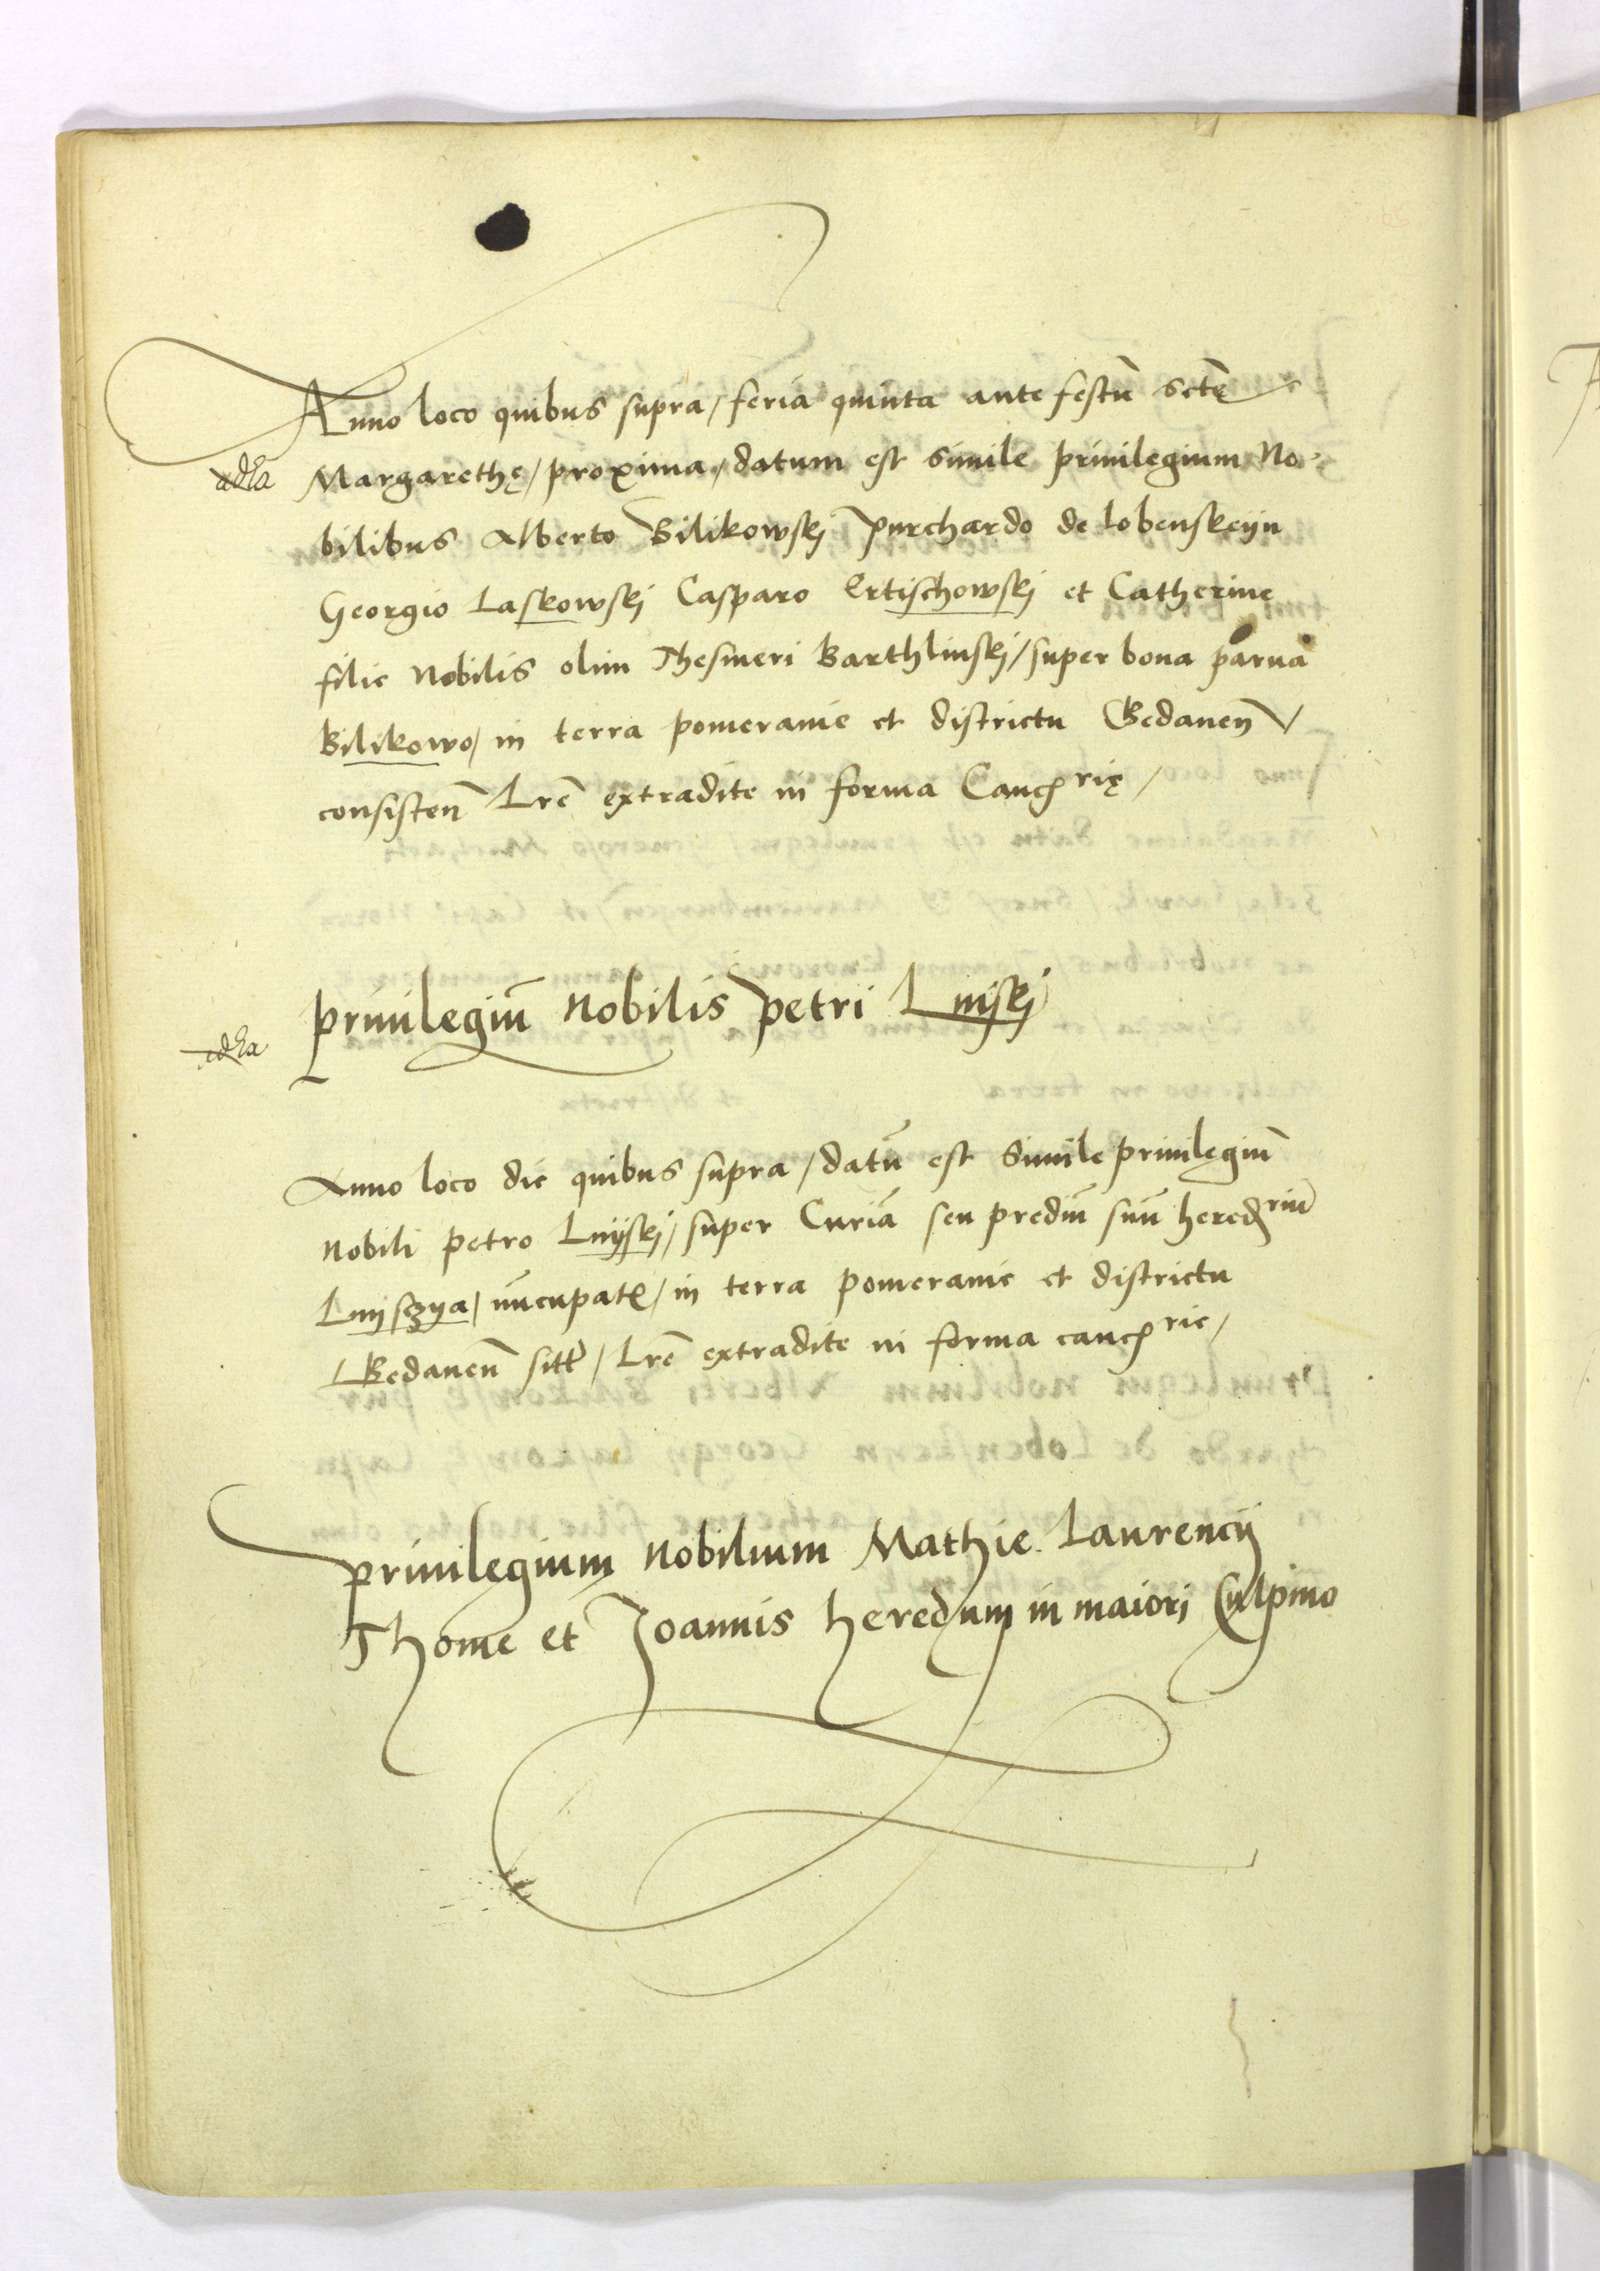 Anno loco quibus supra, feria quinta ante festū Sctę
Margarethę, proxima, datum est Simile priuilegium No-
bilibus Alberto Bilikowskj Purchardo de Lobenskeyn
Georgio Laskowskj Casparo Ertischowskj et Catherine
filie Nobilis olim Thesmeri Barthlinskj, super bona parua
Bilikowo, in terra pomeranie et districtu Gedanen
consisten Lrē extradite in forma Cancrię,
priuilegiū Nobilis Petri Luyskj
Anno loco die quibus supra, datū est Simile priuilegiū
Nobili Petro Luyskj, super Curiā seu prediū suū heredriū
Luyszya, nūcupat, in terra Pomeranie et districtu
Gedanen sitt, Lrē extradite in forma cancrie,
Priuilegium Nobilium Mathie Laurencij
Thome et Joannis heredum in maiori Culpino